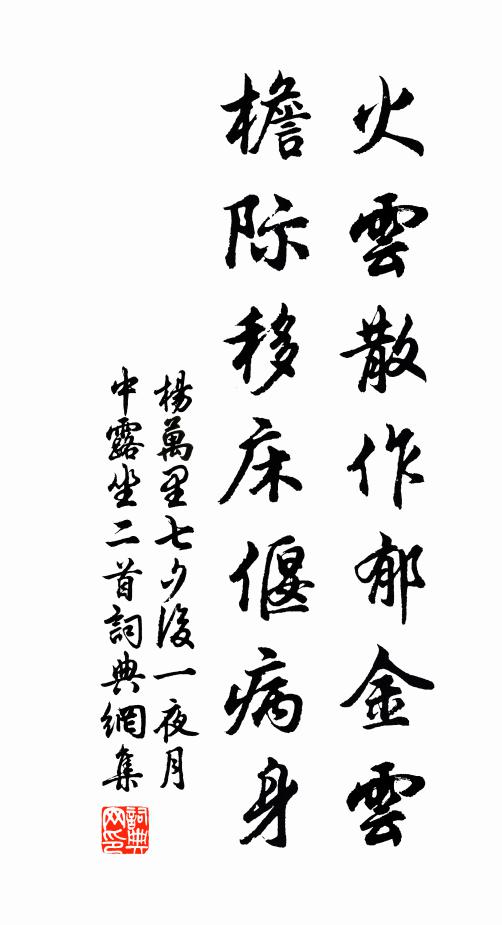 火雲散作郁金雲
檐际移床偃病身
楊萬里七夕後一夜月
中露坐二首詞典網集
詞典网印